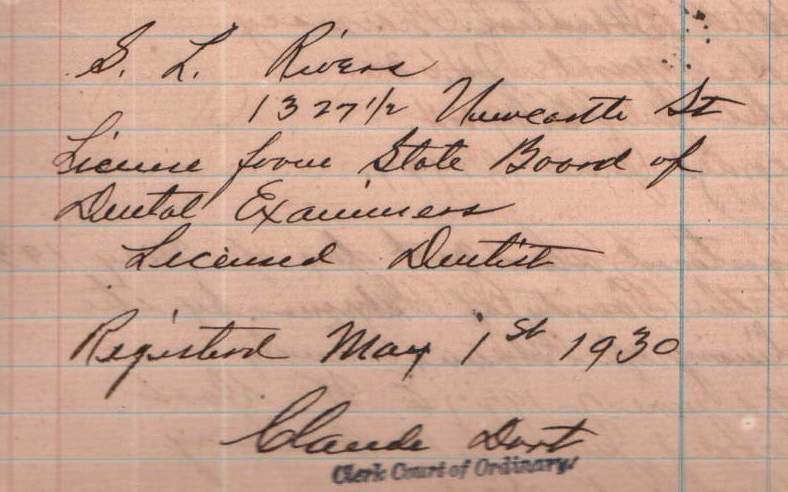 S. L. Rivers
1327 1/2 Newcastle St
License from State Board of
Dental Examiners
Licensed Dentist
Registered May 1st 1930
Claude Dart
Clerk Court of Ordinary.